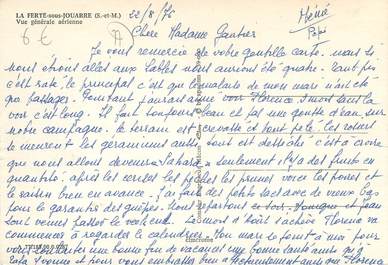 LA FERTE-sous-JOUARRE (S.-et-M.)
Vue générale aérienne
22/8/76
6 €
Chère Madame Gautier
Je vous remercie de votre gentille carte mais si
nous étions allés aux Sables nous aurions été quatre. Tant pis
c'est raté, le principal c'est que le malaise de mon mari n'ait été
que passager. Pourtant pour voir Florence 1 mois sans la
voir c'est long. Il fait toujours beau et pas une goutte d'eau sur
notre campagne. Le terrain est crevassé et tout pelé, les rosiers
se meurent les géraniums aussi tout est desséché c'est à croire
que nous allons devenir Sahara. Seulement il y a des fruits en
quantité, après les cerises les pêches les prunes voire les poires et
le raisin bien en avance. J'ai fait des petits sacs avec de vieux
pour le garantir des guêpes. Nous partons ce soir. Monique et Jean
Louis viennent passer le week-end. Le mois d'août s'achève Florence va
commencer à regarder le calendrier. Mon mari se joint à moi pour
vous souhaiter une bonne fin de vacances une bonne santé ainsi qu'à
Yvonne et pour vous embrasser bien affectueusement ainsi que Florence